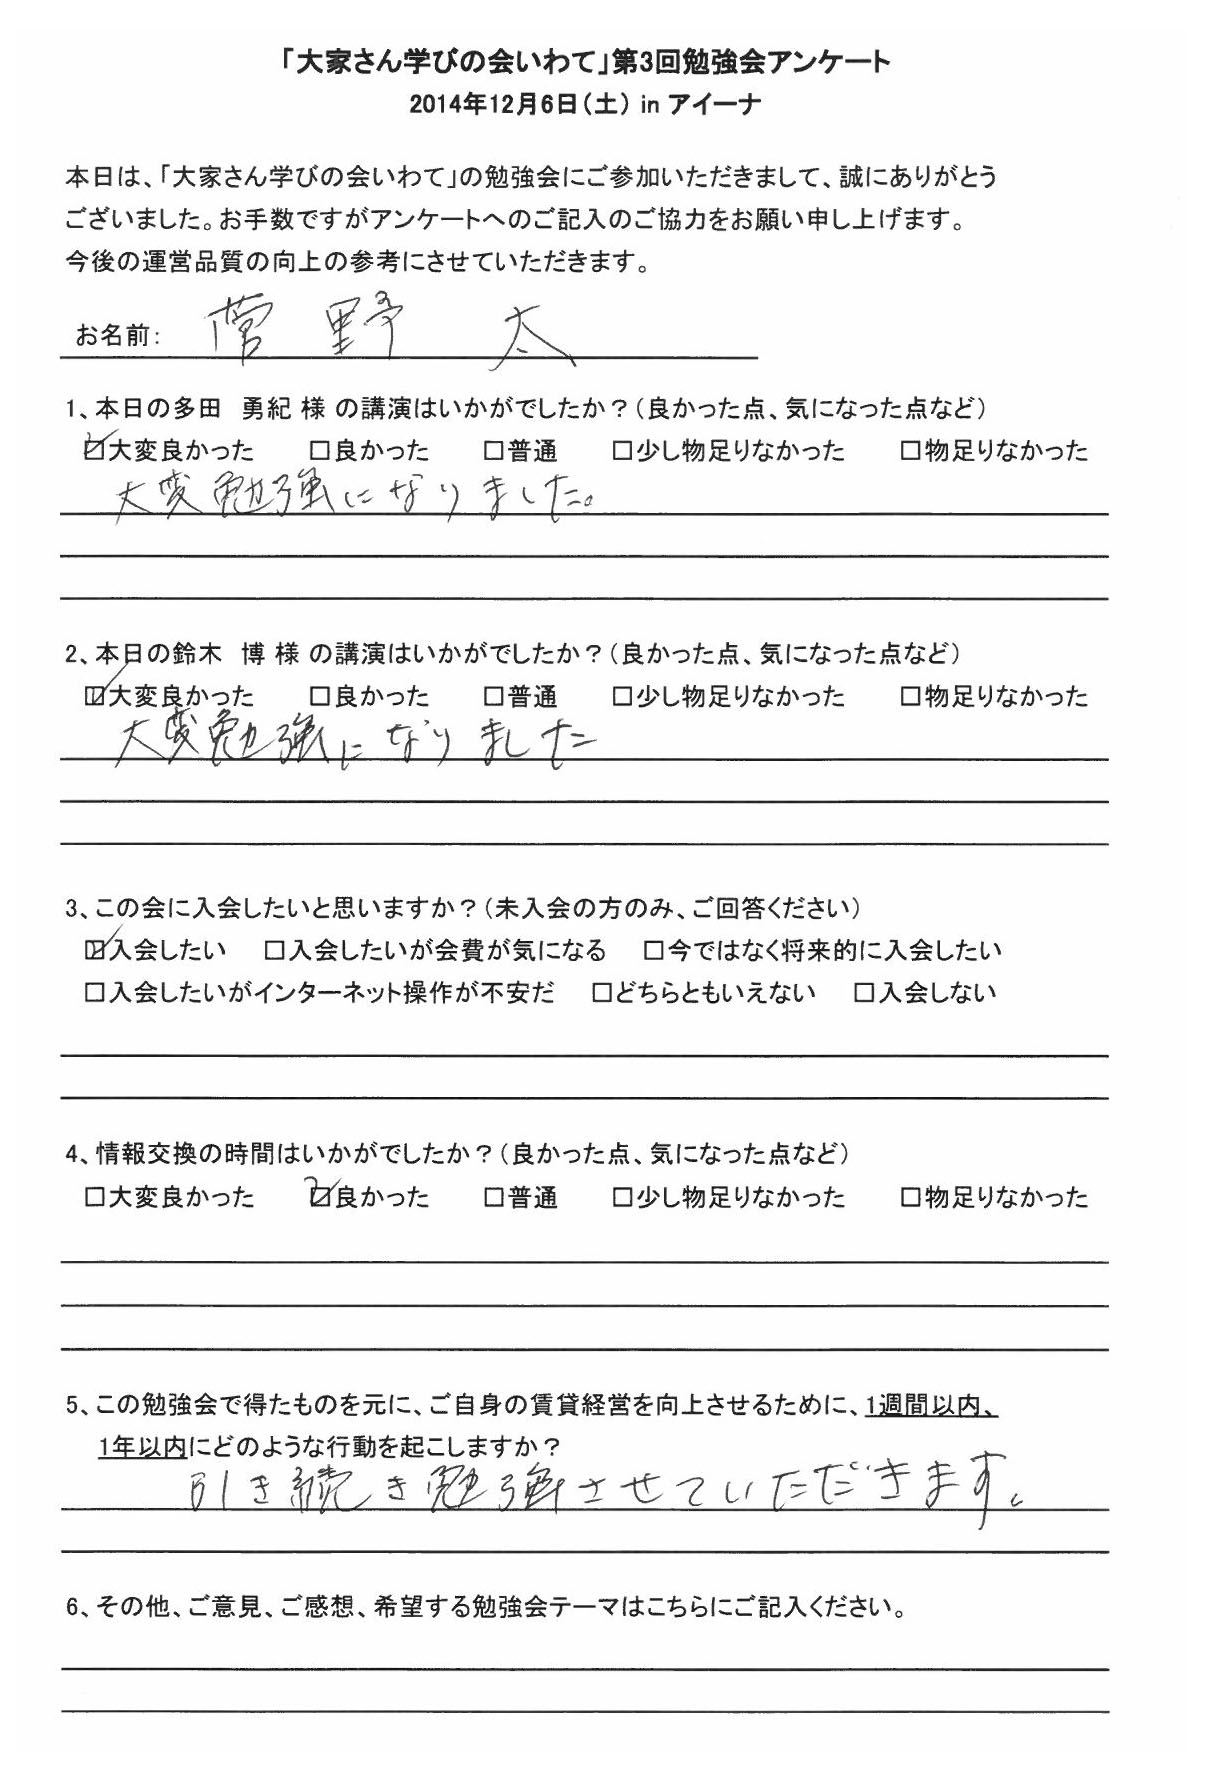 「大家さん学びの会いわて」第3回勉強会アンケート
2014年12月6日（土） in アイーナ
本日は、「大家さん学びの会いわて」の勉強会にご参加いただきまして、誠にありがとう
ございました。お手数ですがアンケートへのご記入のご協力をお願い申し上げます。
今後の運営品質の向上の参考にさせていただきます。
お名前: 菅野 太
1、本日の多田 勇紀 様 の講演はいかがでしたか？（良かった点、気になった点など）
☑大変良かった □良かった □普通 □少し物足りなかった □物足りなかった
大変勉強になりました。
2、本日の鈴木 博 様 の講演はいかがでしたか？（良かった点、気になった点など）
☑大変良かった □良かった □普通 □少し物足りなかった □物足りなかった
大変勉強になりました
3、この会に入会したいと思いますか？（未入会の方のみ、ご回答ください）
☑入会したい □入会したいが会費が気になる □今ではなく将来的に入会したい
□入会したいがインターネット操作が不安だ □どちらともいえない □入会しない
4、情報交換の時間はいかがでしたか？（良かった点、気になった点など）
□大変良かった ☑良かった □普通 □少し物足りなかった □物足りなかった
5、この勉強会で得たものを元に、ご自身の賃貸経営を向上させるために、1週間以内、
1年以内にどのような行動を起こしますか？
引き続き勉強させていただきます。
6、その他、ご意見、ご感想、希望する勉強会テーマはこちらにご記入ください。